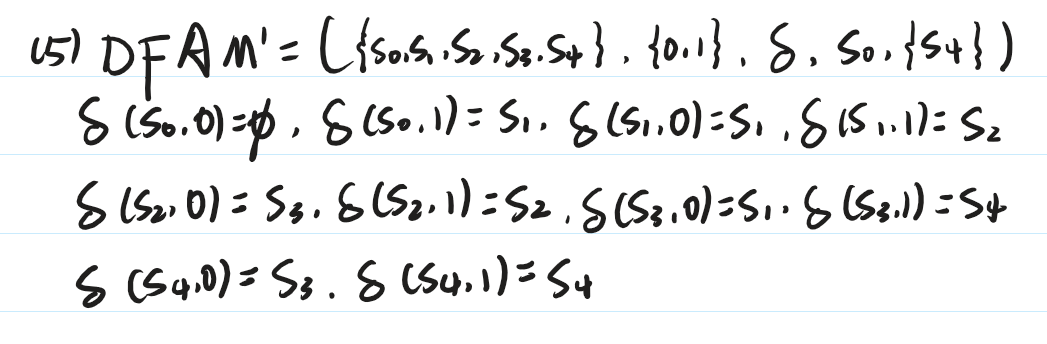 (5) DFA M' = ({s₀,s₁,s₂,s₃.s₄}, {0.1}, δ, s₀, {s₄})
δ(s₀.0)=φ, δ(s₀,1)=s₁. δ(s₁,0)=s₁, δ(s₁.1)=s₂
δ(s₂,0)=s₃. δ(s₂,1)=s₂. δ(s₃,0)=s₁. δ(s₃,1)=s₄
δ(s₄,0)=s₃. δ(s₄,1)=s₄